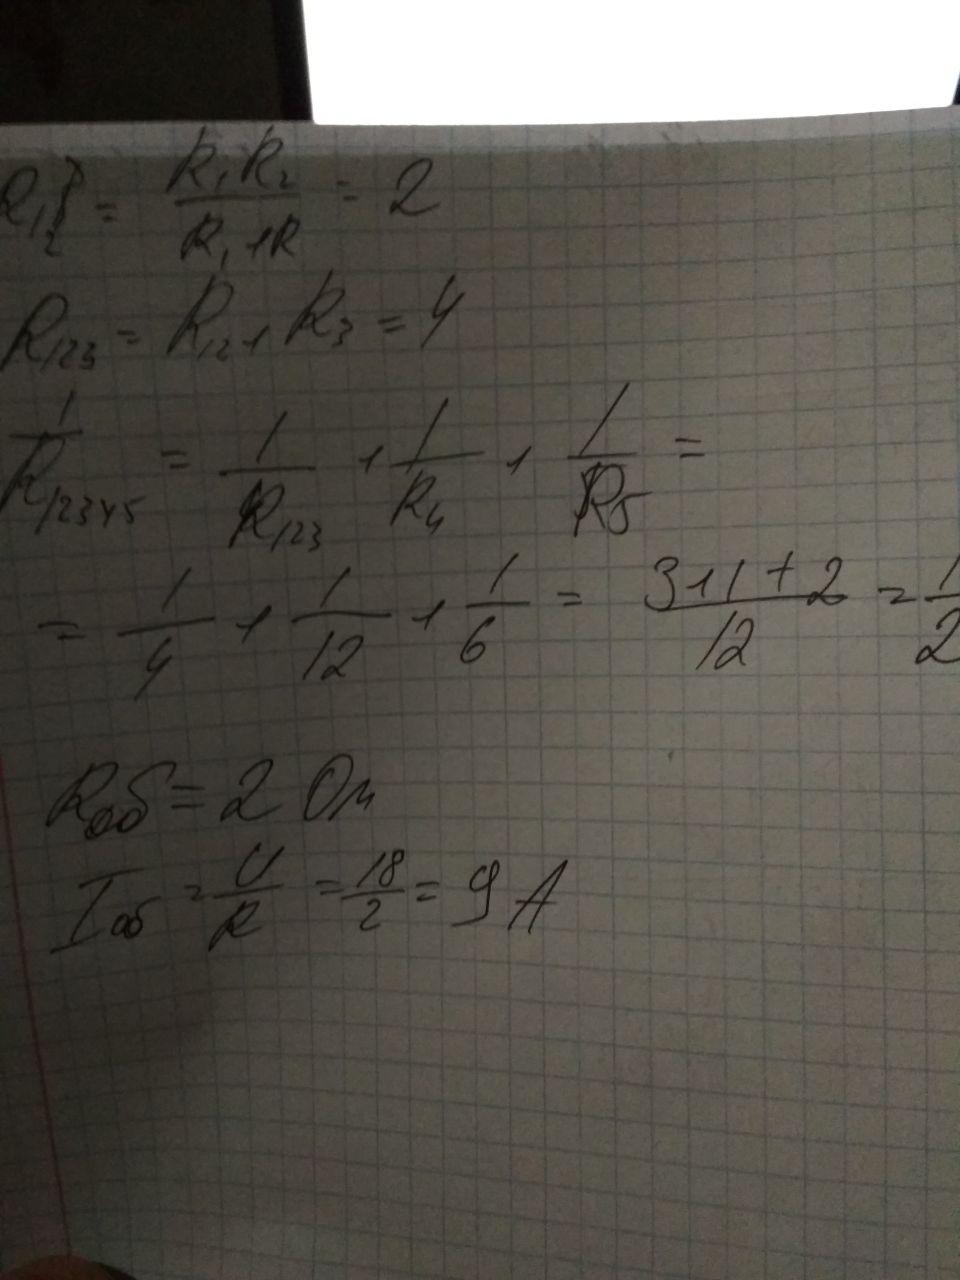 R₁₂ = R₁R₂ / R₁+R = 2
R₁₂₃ = R₁₂+R₃ = 4
1/R₁₂₃₄₅ = 1/R₁₂₃ + 1/R₄ + 1/R₅ =
= 1/4 + 1/12 + 1/6 = 3+1+2 / 12 = 1/2
Rоб = 2 Ом
Iоб = U/R = 18/2 = 9 А